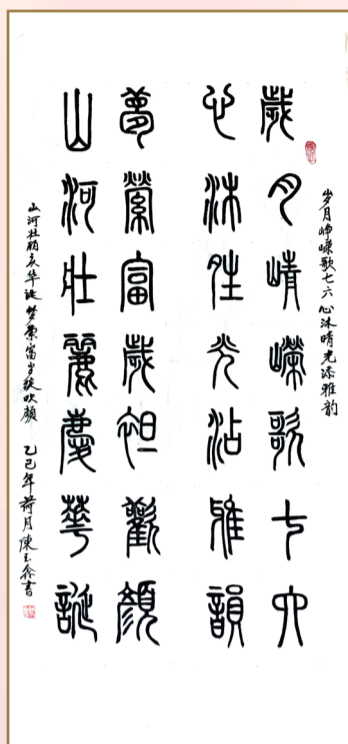 岁月峥嵘歌七六 心沐晴光添雅韵
歲月崝嶸歌七六
心沐晴光沾雅韻
夢縈富歲袒歡顏
山河壯麗慶華誕
山河壮丽庆华诞 梦萦富岁绽欢颜 乙巳年荷月陳玉書